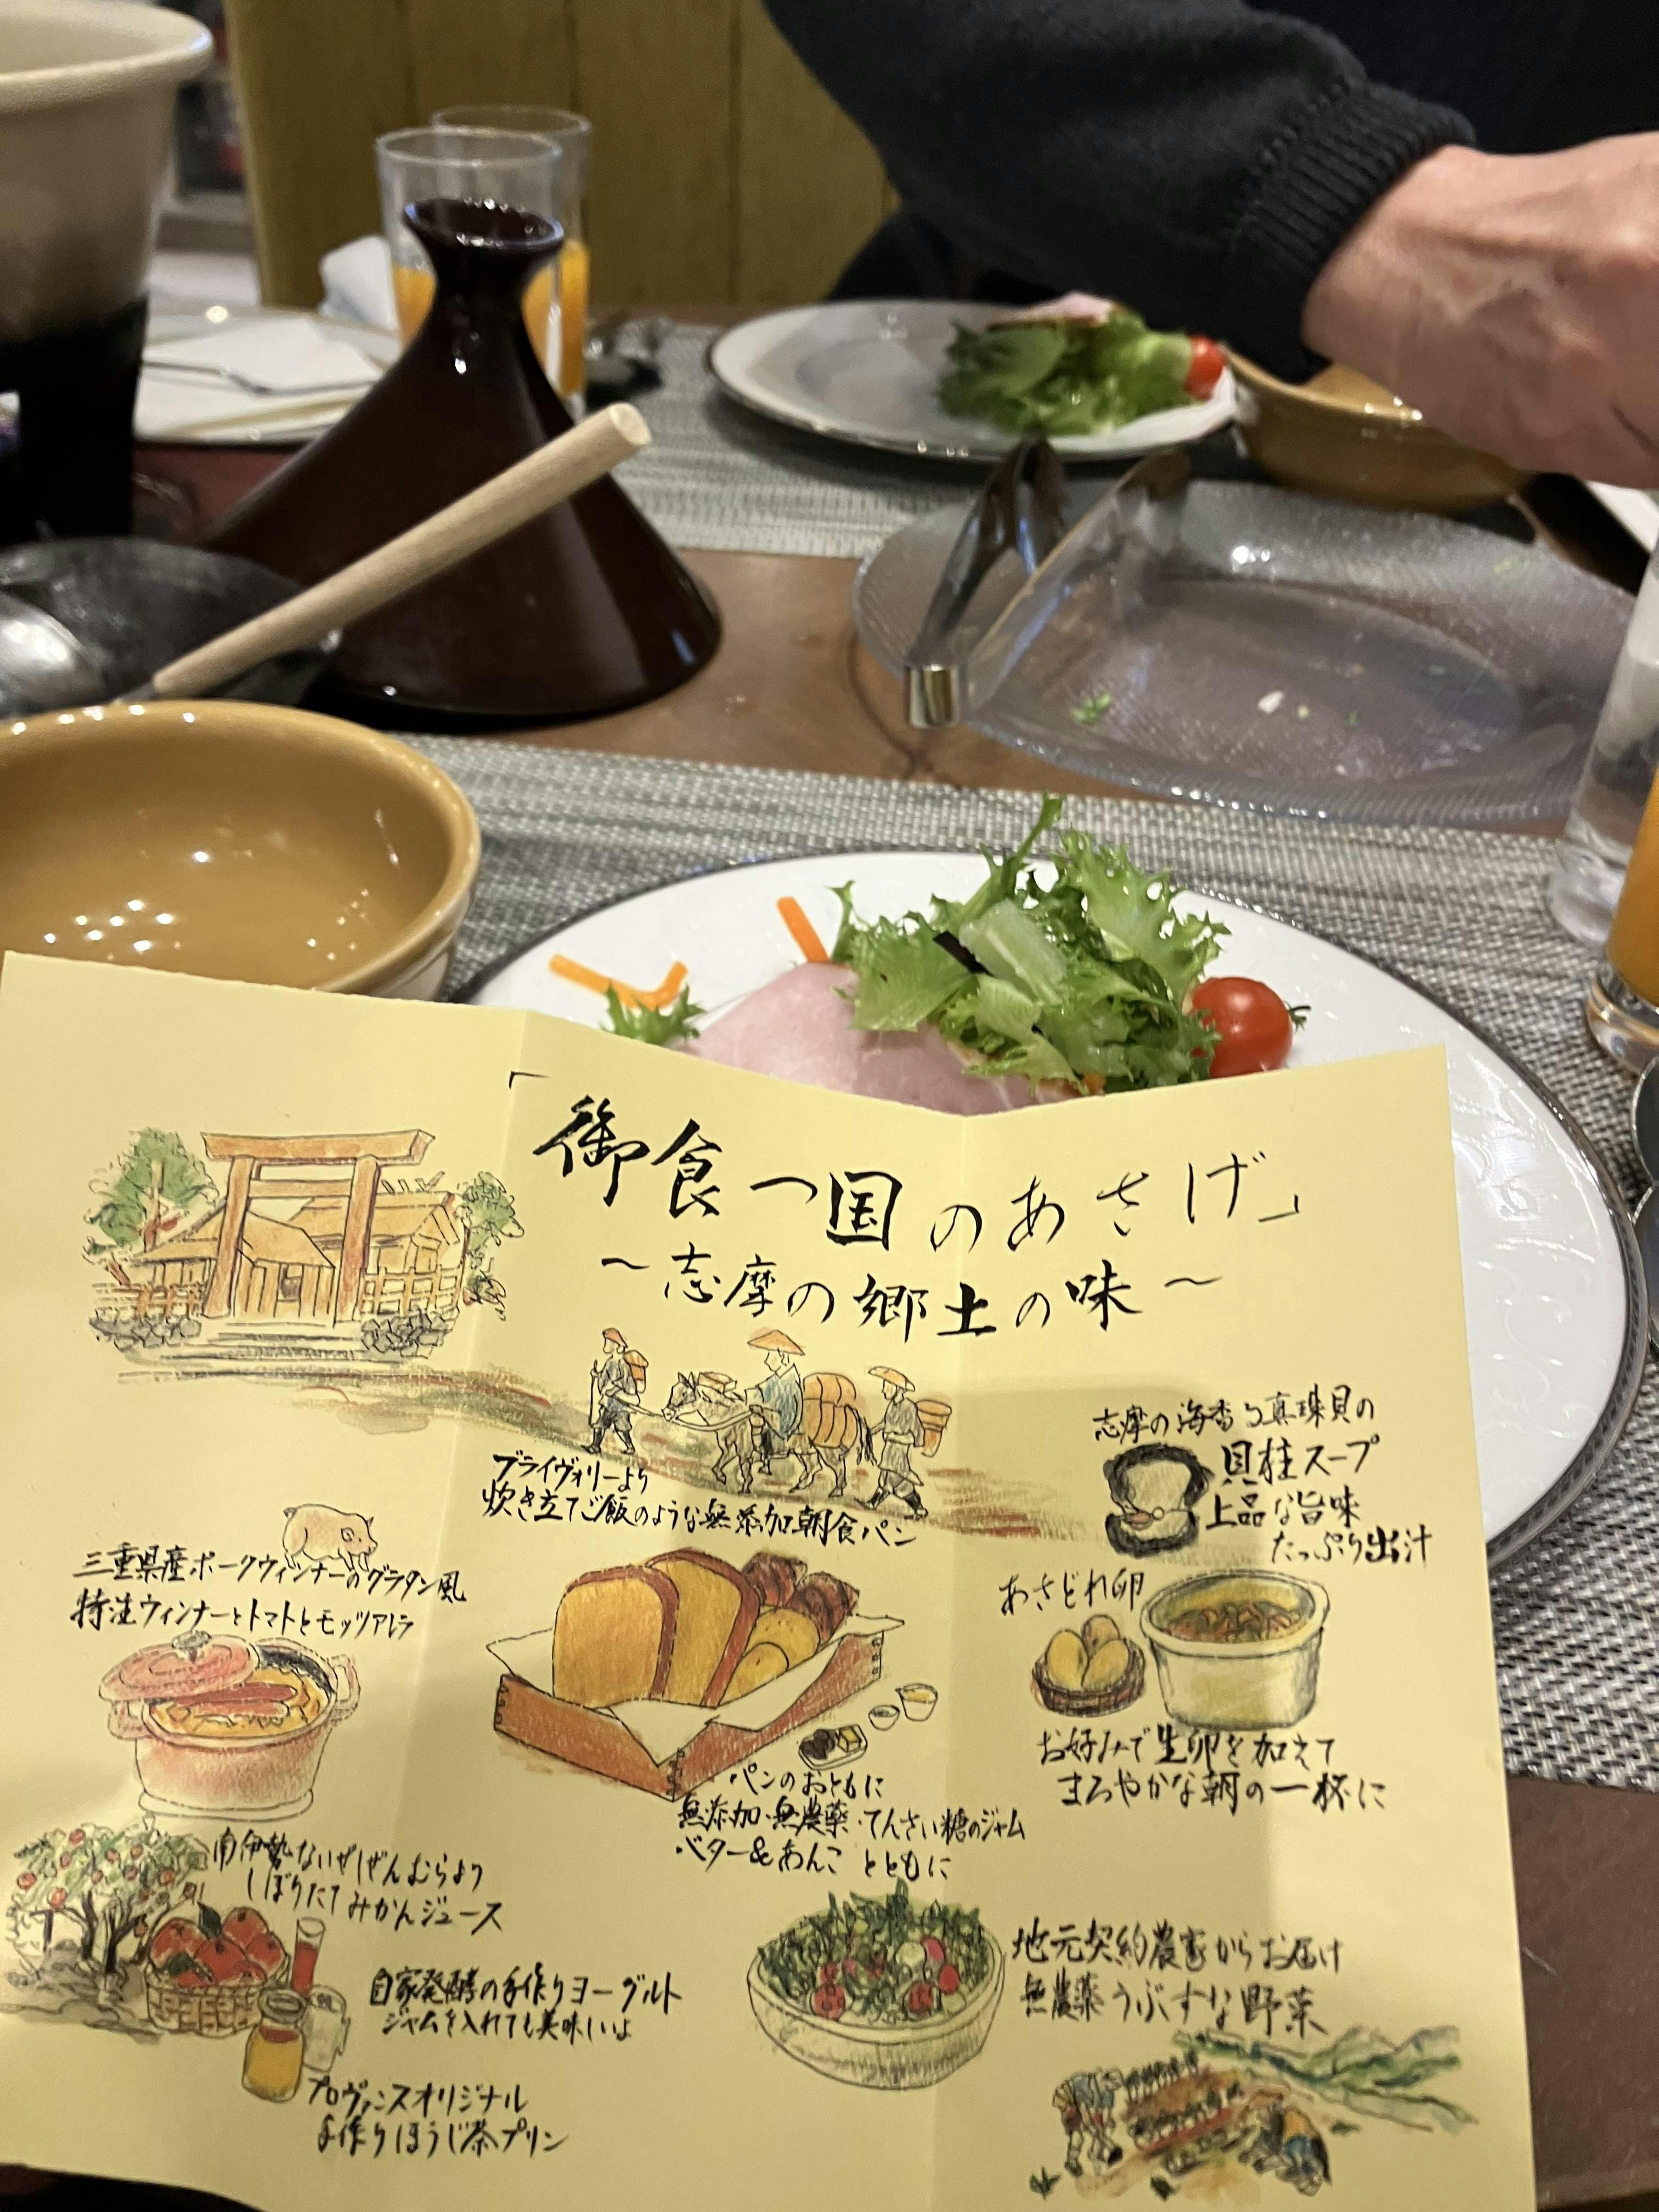 「御食つ国のあさげ」
～志摩の郷土の味～
ブライヴォリーより
炊き立てご飯のような無添加朝食パン
志摩の海香る真珠貝の
貝柱スープ
上品な旨味
たっぷり出汁
三重県産ポークウィンナーのグラタン風
特注ウィンナーとトマトとモッツアレラ
あさどれ卵
お好みで生卵を加えて
まろやかな朝の一杯に
パンのおともに
無添加・無農薬・てんさい糖のジャム
バター&あんことともに
南伊勢ないぜしぜんむらより
しぼりたてみかんジュース
自家発酵の手作りヨーグルト
ジャムを入れても美味しいよ
地元契約農家からお届け
無農薬うぶすな野菜
プロヴァンスオリジナル
手作りほうじ茶プリン